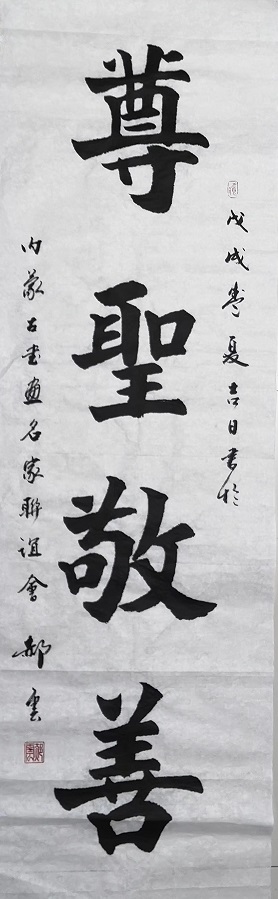 尊聖敬善
戊戌孟夏吉日書於
内蒙古書畫名家聯誼會 郝雲